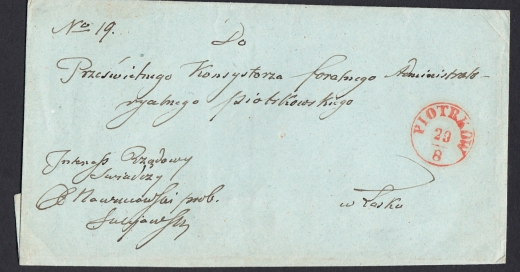 No 19.
Do
Prześwietnego Konsystorza foralnego Administrato-
ryalnego piotrkowskiego
PIOTRKÓW
29
8
Interess Rządowy
Swiadczy
prob.
w Łasku